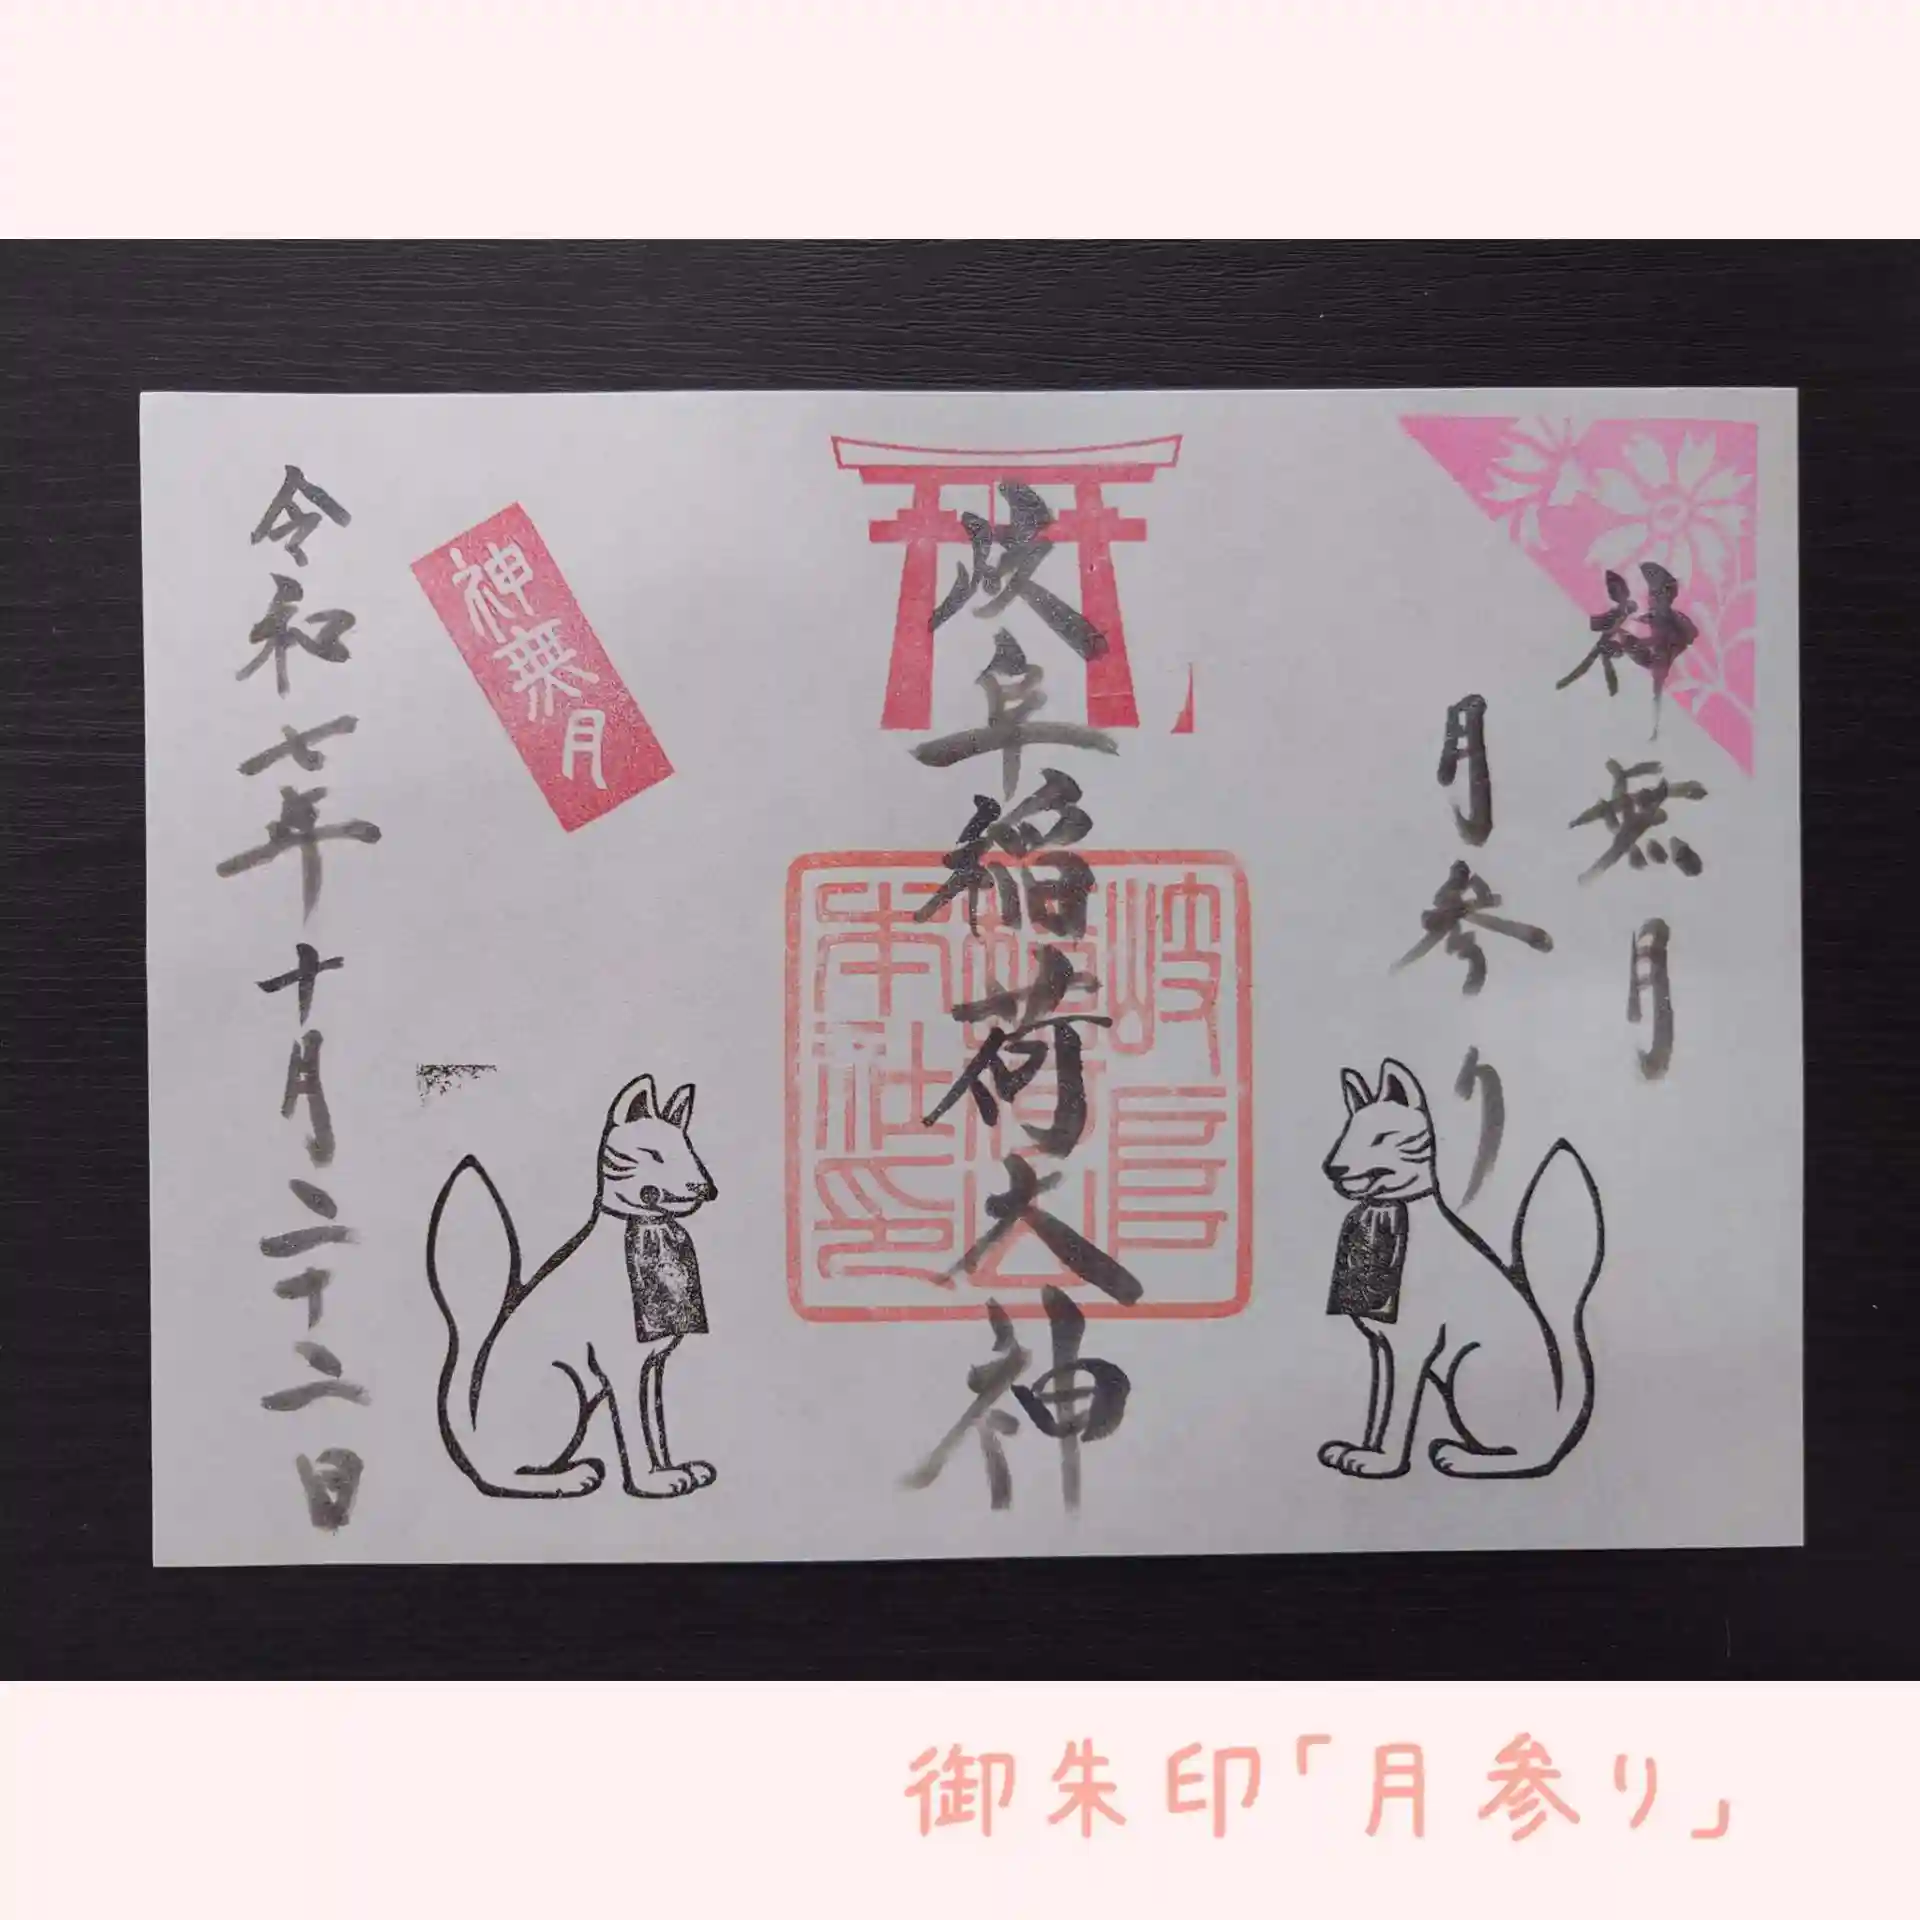 神無月
月参り
岐阜稲荷大神
岐阜
稲荷山
本社印
神無月
令和七年十月二十二日
御朱印「月参り」